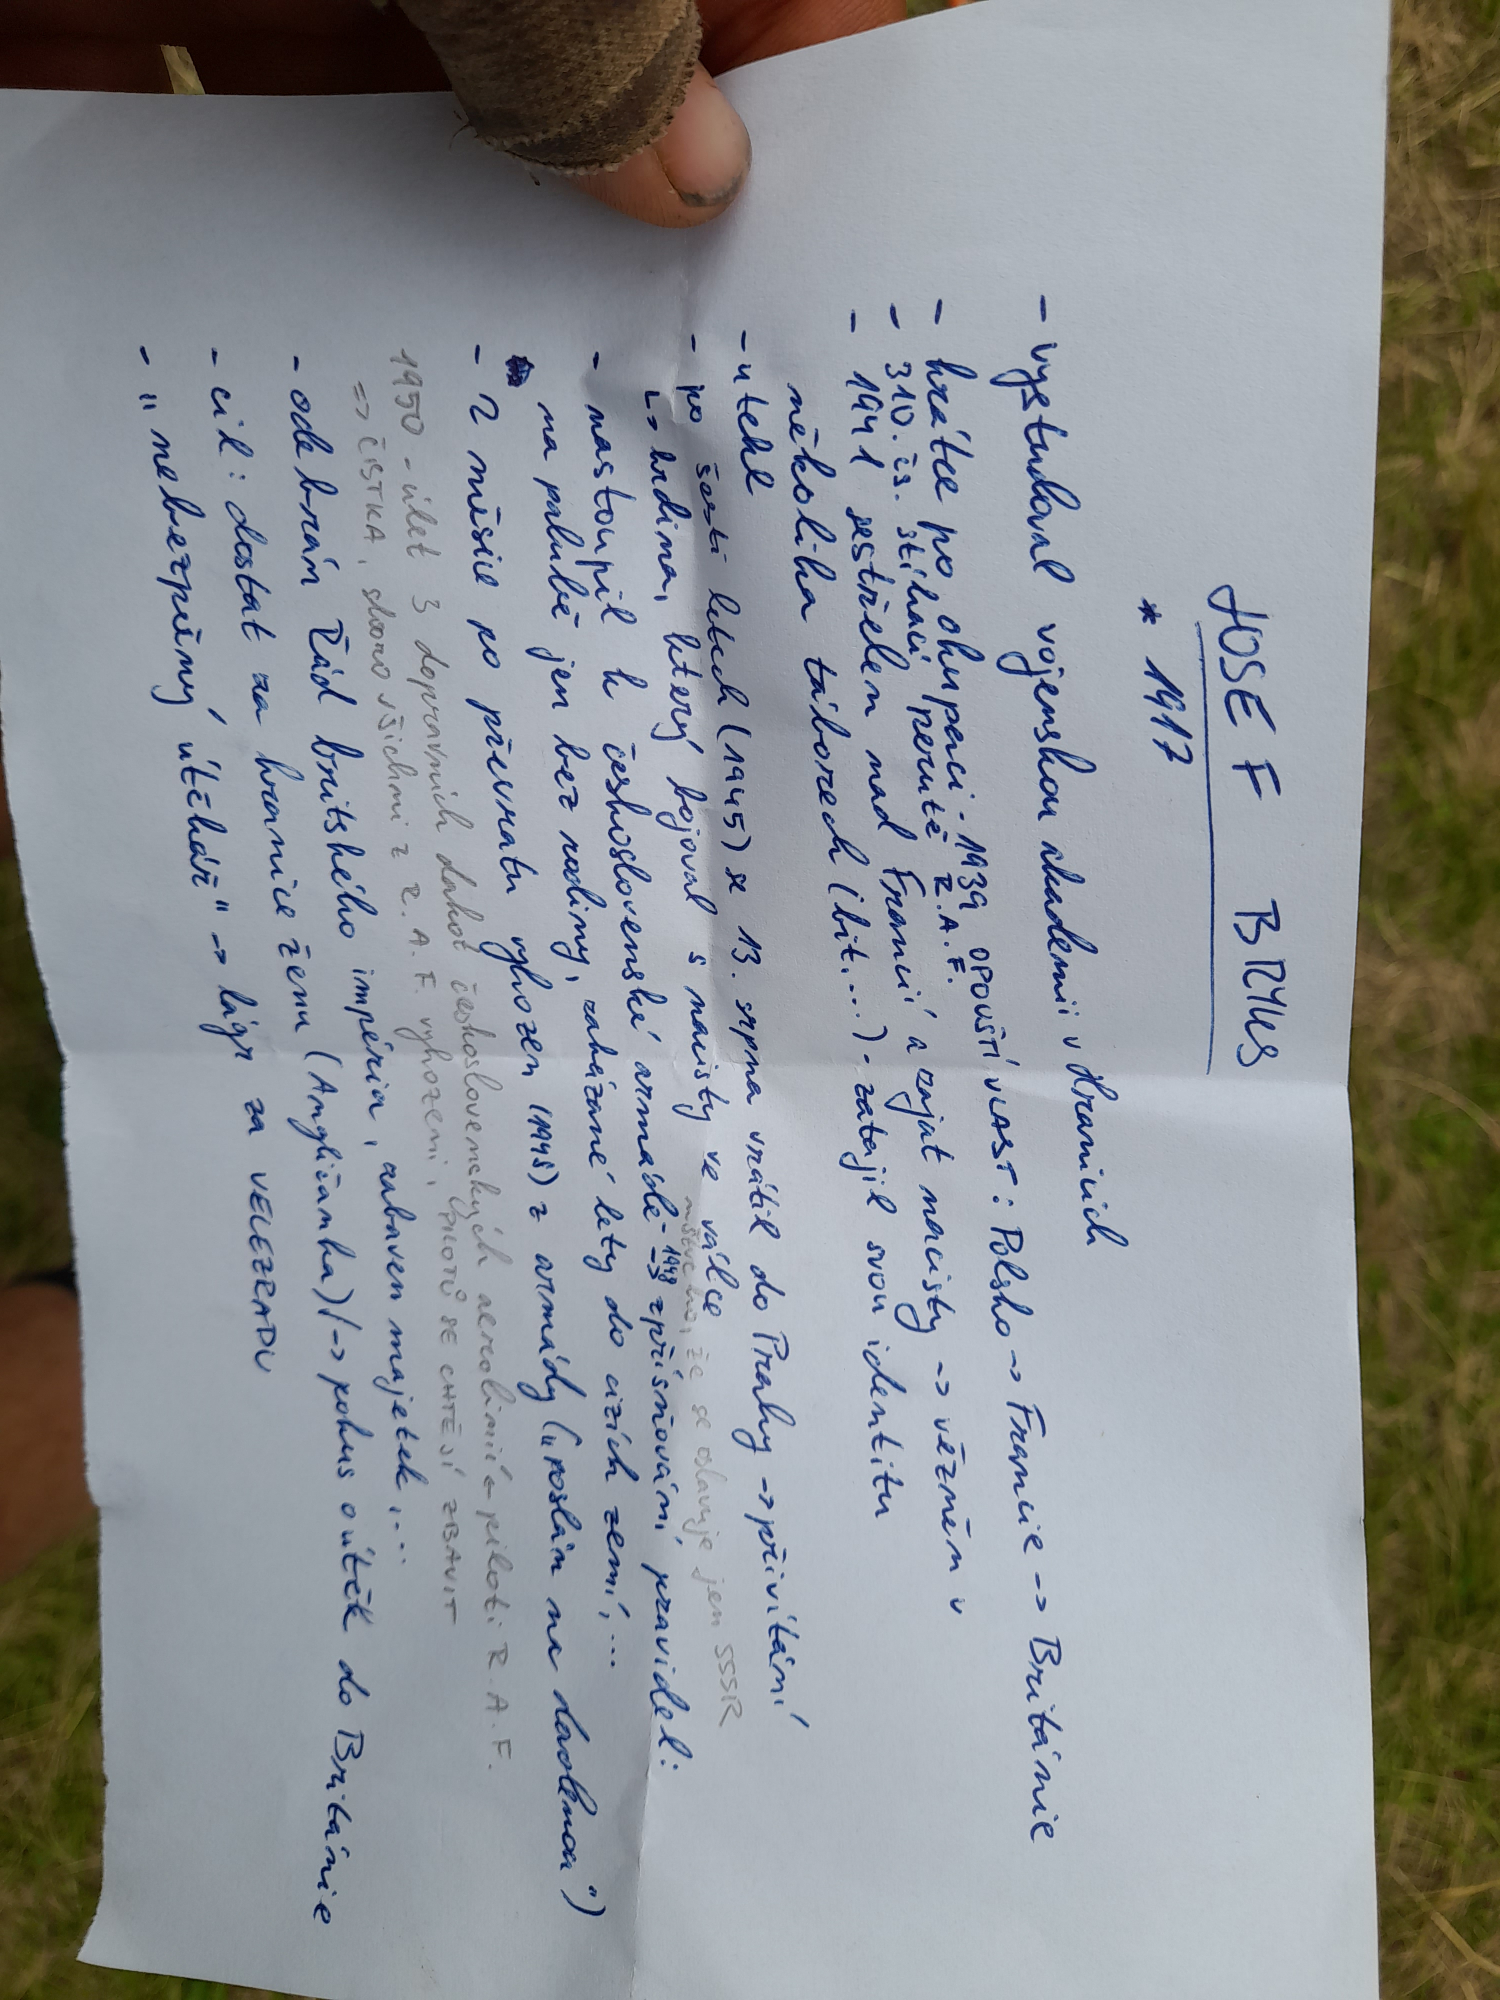 JOSEF BRYKS
* 1917
- vystudoval vojenskou akademii v Hranicích
- krátce po okupaci - 1939 OPOUŠTÍ VLAST: Polsko -> Francie -> Británie
- 310. čs. stíhací perutě R.A.F.
- 1941 sestřelen nad Francií a zajat nacisty -> vězněn v
několika táborech (bit...) - zatajil svou identitu
- utekl
- po šesti letech (1945) se 13. srpna vrátil do Prahy -> přivítání
↳ hrdina, který bojoval s nacisty ve válce
že se oslavuje jen SSSR
- nastoupil k československé armádě - 1948 -> zpřísňování pravidel:
na palubě jen bez rodiny, zakázané lety do cizích zemí,...
- 2 měsíce po převratu vyhozen (1948) z armády ("poslán na dovolenou")
1950 - úlet 3 dopravních dakot československých aerolinií <- piloti R.A.F.
=> ČISTKA, skoro všichni z R.A.F. vyhozeni, PILOTŮ SE CHTĚJÍ ZBAVIT
- odebrán Řád britského impéria, zabaven majetek,...
- cíl: dostat za hranice ženu (Angličanka)/-> pokus o útěk do Británie
- "nebezpečný útěkář" -> lágr za VELEZRADU